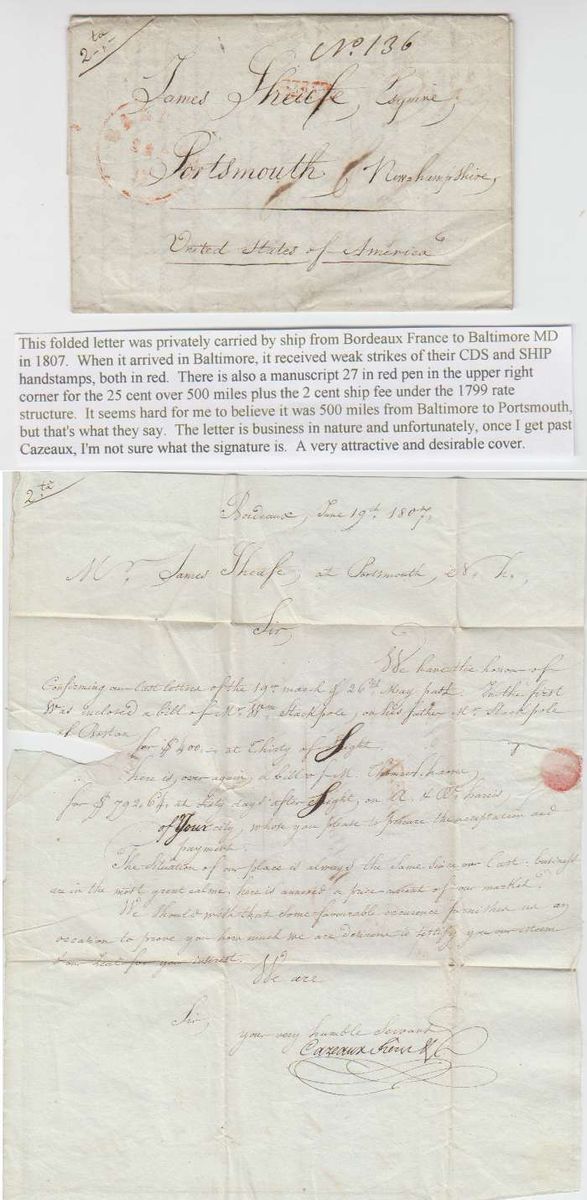 2ta
No. 136
SHIP
James Sheafe, Esquire,
Portsmouth, Newhampshire,
United States of America
This folded letter was privately carried by ship from Bordeaux France to Baltimore MD
in 1807. When it arrived in Baltimore, it received weak strikes of their CDS and SHIP
handstamps, both in red. There is also a manuscript 27 in red pen in the upper right
corner for the 25 cent over 500 miles plus the 2 cent ship fee under the 1799 rate
structure. It seems hard for me to believe it was 500 miles from Baltimore to Portsmouth,
but that's what they say. The letter is business in nature and unfortunately, once I get past
Cazeaux, I'm not sure what the signature is. A very attractive and desirable cover.
2ta
Bordeaux, June 19th 1807,
Mr. James Sheafe, at Portsmouth, N. h.,
Sir,
We have the honour of
Confirming our last letters of the 19th march & 26th May past. In the first
Was inclosed a bill of Mr. Wm Stackpole, on his father Mr. Stackpole
of Boston
for $ 400.- at Thirty of Sight.
here is, over again, a bill of
for $ 792.64, at days after Sight, on
of Your city, whose you please to procure the acceptation and
payment.
The Situation of our place is always the same Since our Last. business
are in the most great calme. here is annexed a price-current of our market.
We Should wish that Some favourable occurence furnishes us an
occasion to prove you how much we are desirous to testify you our esteem
& our Zeal for your interest.
We are
Sir,
your very humble Servants
Cazeaux frères &